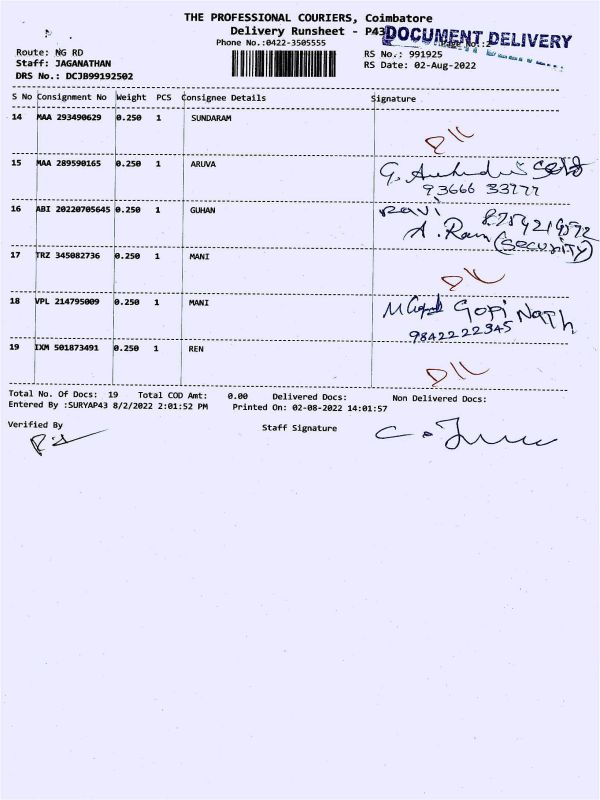 THE PROFESSIONAL COURIERS, Coimbatore
Delivery Runsheet - P43
DOCUMENT DELIVERY
Phone No.:0422-3505555
Page No.:2
Route: NG RD
RS No.: 991925
Staff: JAGANATHAN
RS Date: 02-Aug-2022
DRS No.: DCJB99192502
S No Consignment No Weight PCS Consignee Details Signature
14 MAA 293490629 0.250 1 SUNDARAM
15 MAA 289590165 0.250 1 ARUVA G. Self
93666 33777
16 ABI 20220705645 0.250 1 GUHAN Ravi 8754219572
A. Ram (Security)
17 TRZ 345082736 0.250 1 MANI
18 VPL 214795009 0.250 1 MANI Gopi Nath
9842222345
19 IXM 501873491 0.250 1 REN
Total No. Of Docs: 19 Total COD Amt: 0.00 Delivered Docs: Non Delivered Docs:
Entered By :SURYAP43 8/2/2022 2:01:52 PM Printed On: 02-08-2022 14:01:57
Verified By
Staff Signature